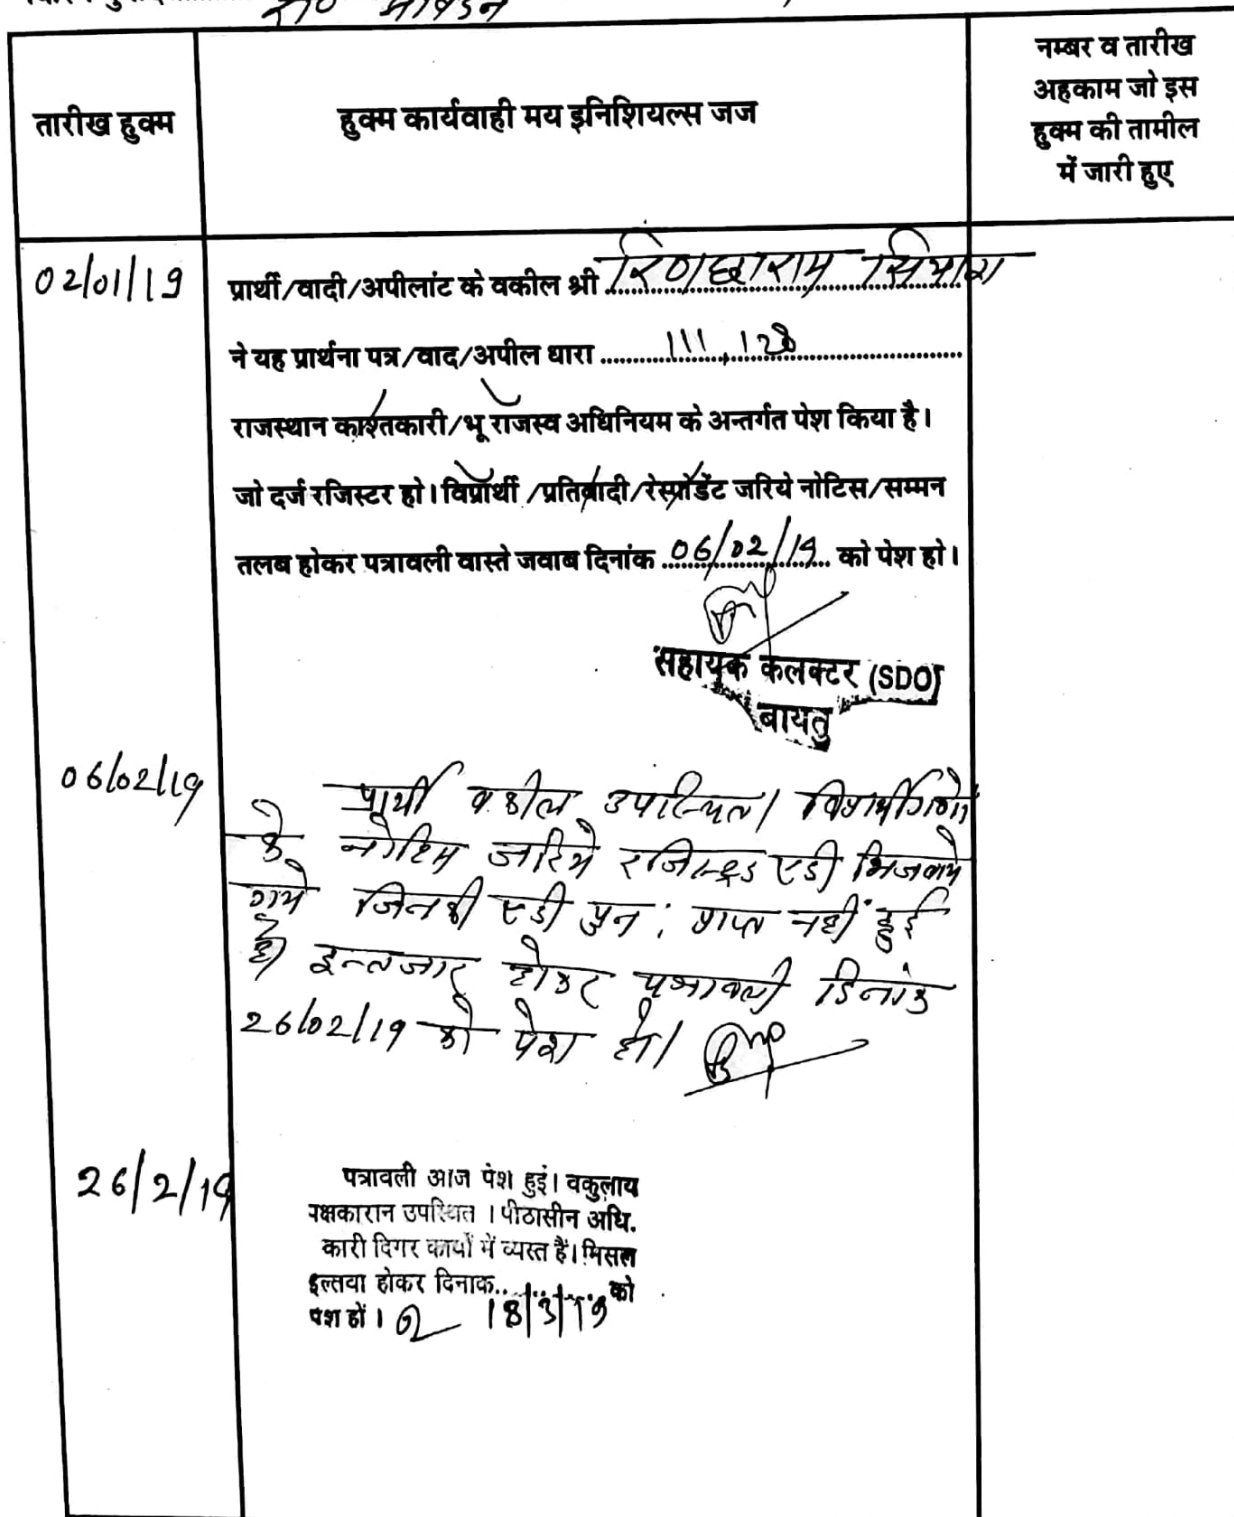 रा० आवेदन
तारीख हुक्म
हुक्म कार्यवाही मय इनिशियल्स जज
नम्बर व तारीख
अहकाम जो इस
हुक्म की तामील
में जारी हुए
02/01/19
प्रार्थी/वादी/अपीलांट के वकील श्री रिणछाराम सियाग
ने यह प्रार्थना पत्र/वाद/अपील धारा 111, 128
राजस्थान काश्तकारी/भू राजस्व अधिनियम के अन्तर्गत पेश किया है।
जो दर्ज रजिस्टर हो। विप्रार्थी/प्रतिवादी/रेस्पोडेंट जरिये नोटिस/सम्मन
तलब होकर पत्रावली वास्ते जवाब दिनांक 06/02/19 को पेश हो।
सहायक कलक्टर (SDO)
बायतु
06/02/19
प्रार्थी वकील उपस्थित। विप्रार्थीगणों
के नोटिस जरिये रजिस्टर्ड एडी भिजवाये
गये जिनकी एडी पुन: प्राप्त नहीं हुई
है। इन्तजार होकर पत्रावली दिनांक
26/02/19 को पेश हो।
26/2/19
पत्रावली आज पेश हुई। वकुलाय
पक्षकारान उपस्थित । पीठासीन अधि.
कारी दिगर कार्यो में व्यस्त हैं। मिसल
इल्तवा होकर दिनाक.. को
पेश हों। 18/3/19